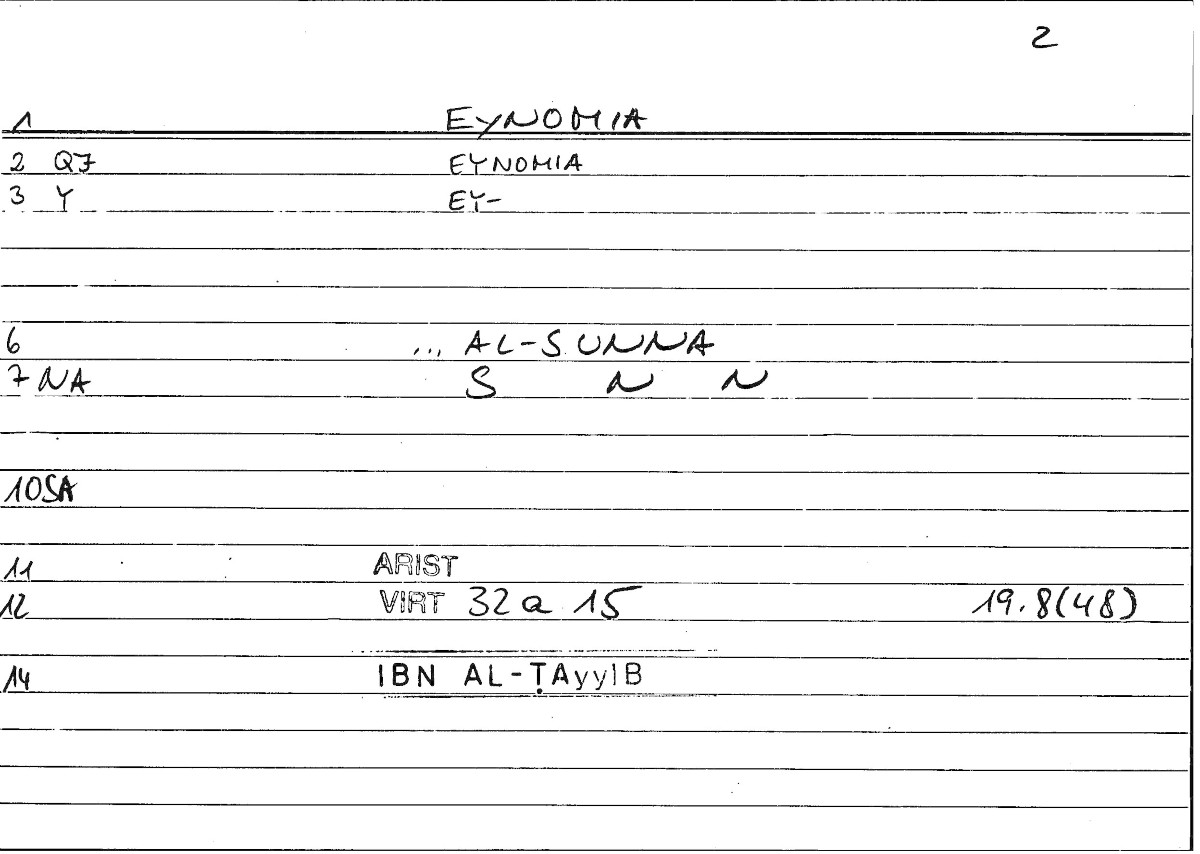 2
1 EYNOMIA
2 Q7 EYNOMIA
3 Y EY-
6 ... AL-SUNNA
7 NA S N N
10SA
11 ARIST
12 VIRT 32a 15 19.8(48)
14 IBN AL-ṬAyyIB